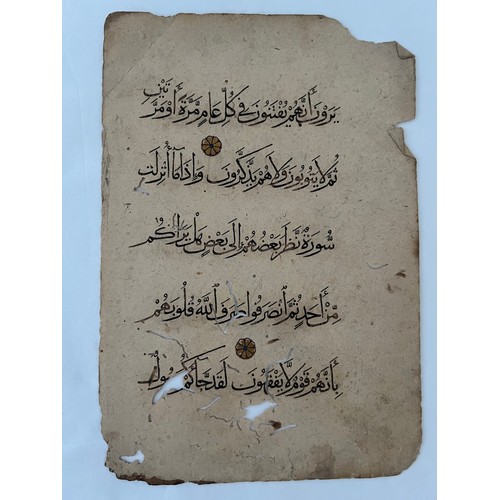 يَرَوْنَ أَنَّهُمْ يُفْتَنُونَ فِي كُلِّ عَامٍ مَرَّةً أَوْ مَرَّتَيْنِ
ثُمَّ لَا يَتُوبُونَ وَلَا هُمْ يَذَّكَّرُونَ وَإِذَا مَا أُنْزِلَتْ
سُورَةٌ نَظَرَ بَعْضُهُمْ إِلَى بَعْضٍ هَلْ يَرَاكُمْ
مِنْ أَحَدٍ ثُمَّ انْصَرَفُوا صَرَفَ اللَّهُ قُلُوبَهُمْ
بِأَنَّهُمْ قَوْمٌ لَا يَفْقَهُونَ لَقَدْ جَاءَكُمْ رَسُولٌ